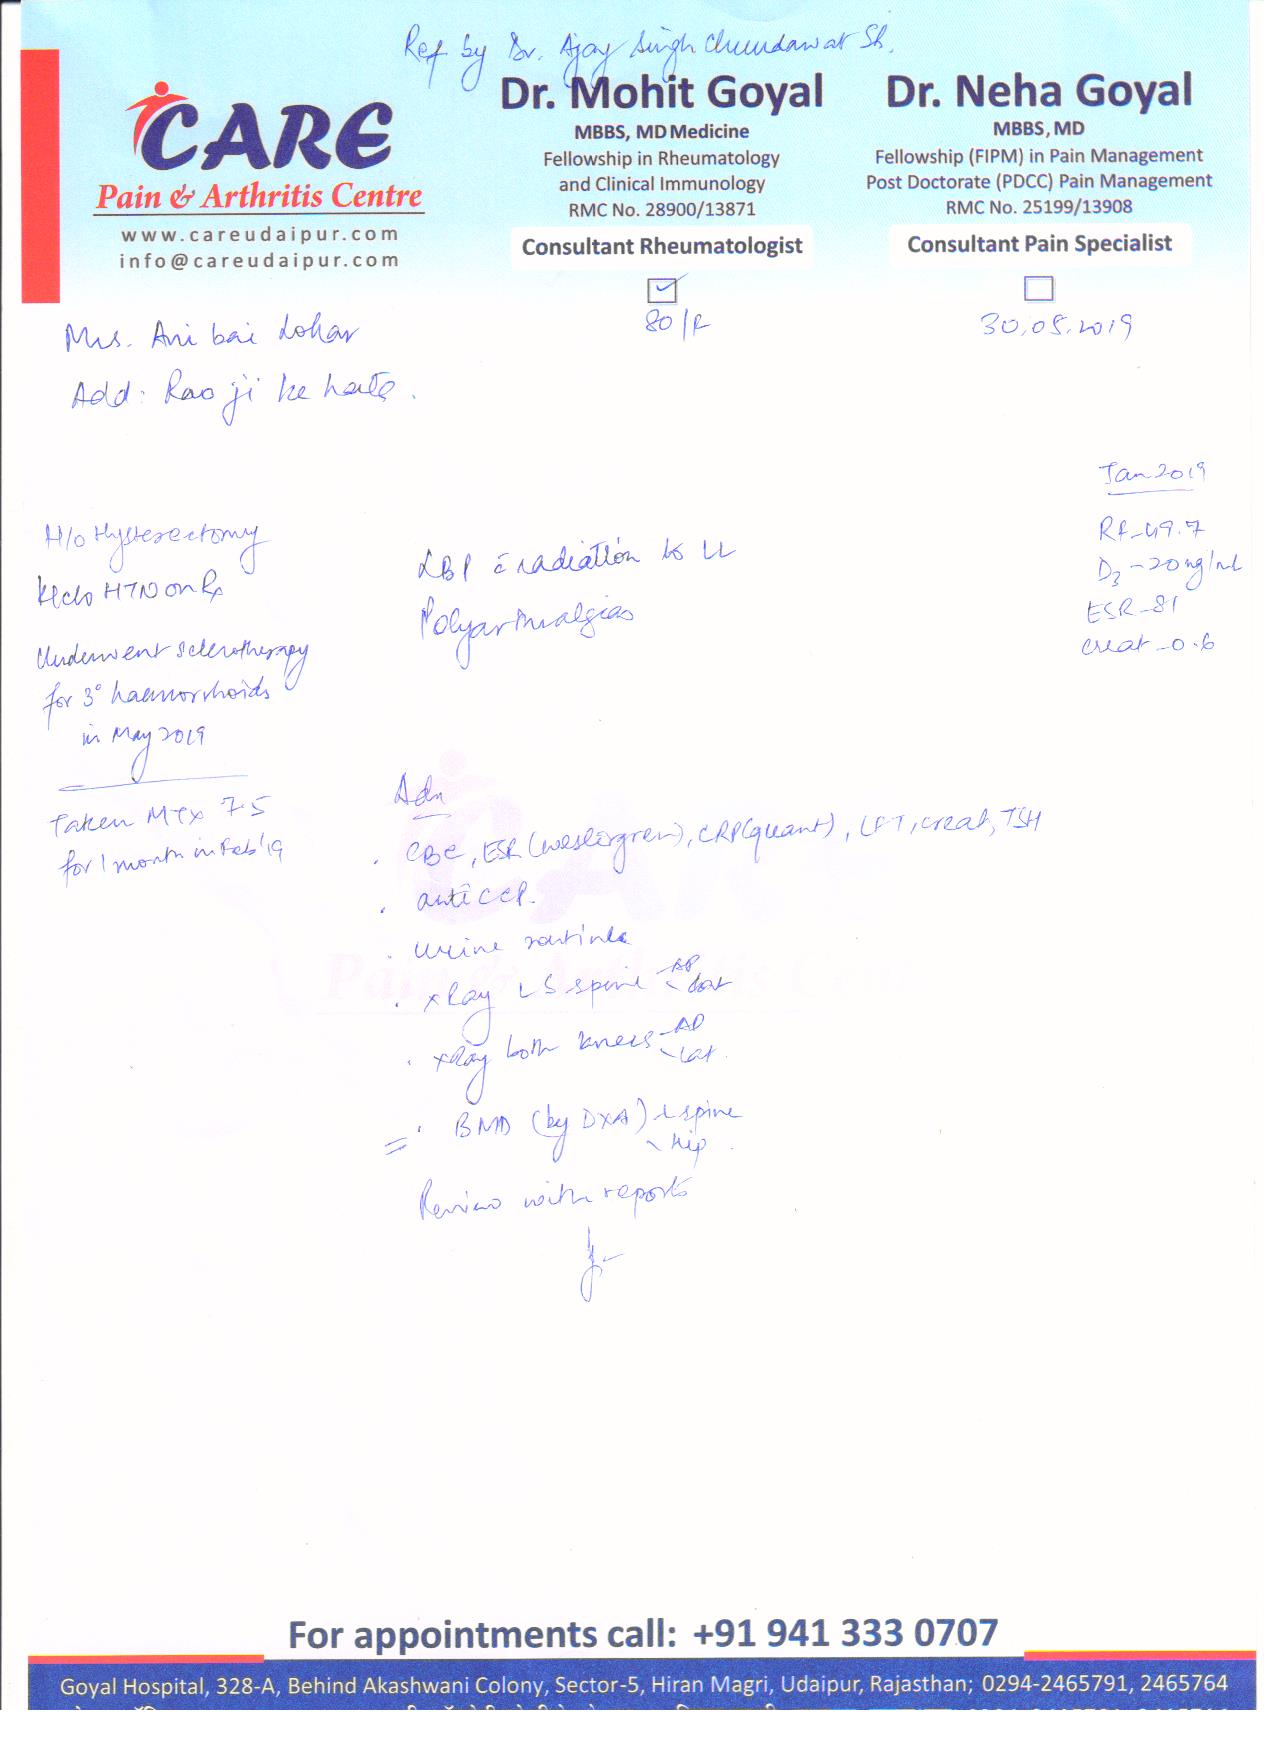 Ref by Dr. Ajay Singh Chundawat Sb.
CARE
Pain & Arthritis Centre
www.careudaipur.com
info@careudaipur.com
Dr. Mohit Goyal
MBBS, MD Medicine
Fellowship in Rheumatology
and Clinical Immunology
RMC No. 28900/13871
Consultant Rheumatologist
Dr. Neha Goyal
MBBS, MD
Fellowship (FIPM) in Pain Management
Post Doctorate (PDCC) Pain Management
RMC No. 25199/13908
Consultant Pain Specialist
Mrs. Ani bai Lohar
80/F
30.05.2019
Add: Rao ji ke
H/o Hysterectomy
K/c/o HTN on Rx
Underwent Sclerotherapy
for 3° haemorrhoids
in May 2019
Taken MTX 7.5
for 1 month in Feb'19
LBP c̄ radiation to LL
Polyarthralgias
Jan 2019
RF - 49.7
D3 - 20 ng/ml
ESR - 81
creat - 0.6
Adv
. CBC, ESR (westergren), CRP (quant), LFT, creat, TSH
. anti CCP.
. Urine routine
. xRay LS spine - AP
- Lat
. xRay both knees - AP
- Lat.
. BMD (by DXA) L spine
- Hip.
Review with reports
For appointments call: +91 941 333 0707
Goyal Hospital, 328-A, Behind Akashwani Colony, Sector-5, Hiran Magri, Udaipur, Rajasthan; 0294-2465791, 2465764